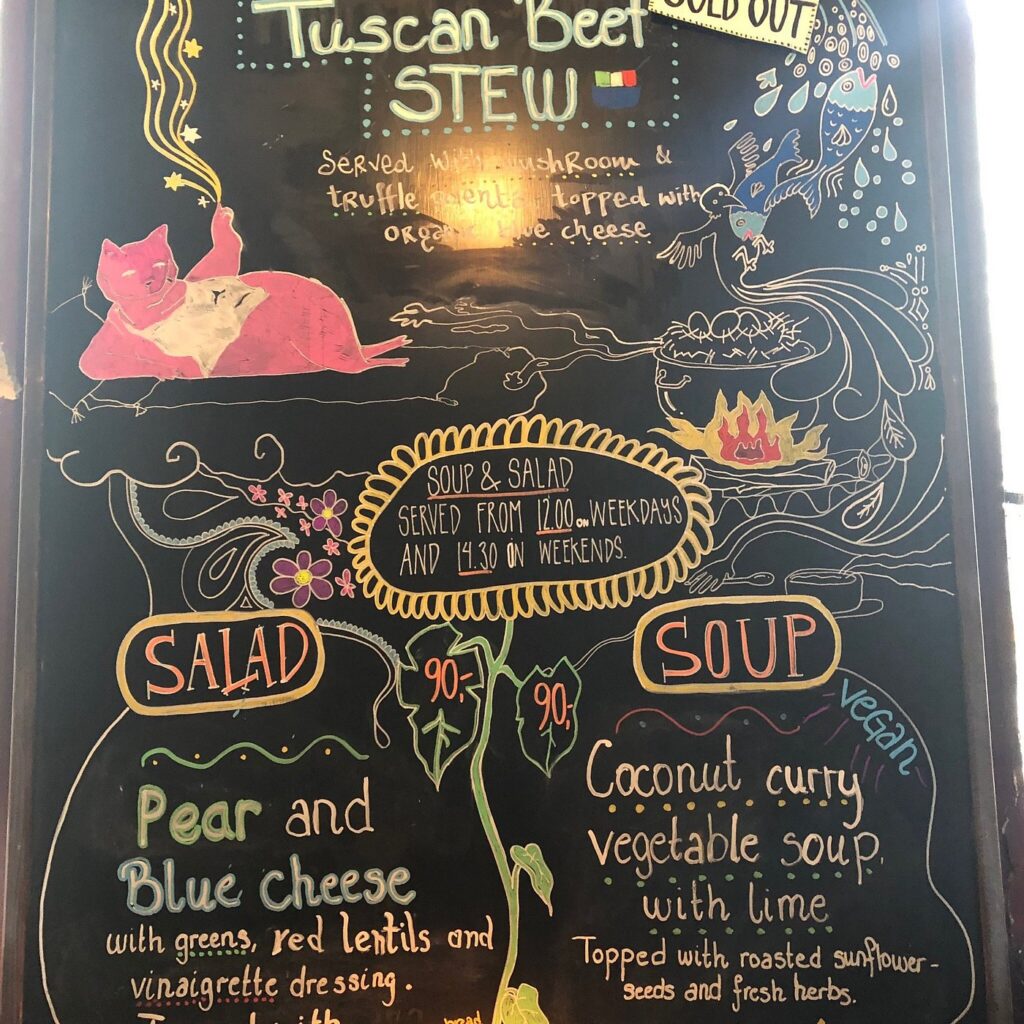 SOLD OUT
Tuscan Beef
STEW
Served with mushRoom &
truffle polenta topped with
organic blue cheese
SOUP & SALAD
SERVED FROM 12.00 on WEEKDAYS
AND 14.30 ON WEEKENDS.
SALAD
90,-
Pear and
Blue cheese
with greens, red lentils and
vinaigrette dressing.
with
bread
SOUP
90,-
vegan
Coconut curry
vegetable soup,
with lime
Topped with roasted sunflower-
seeds and fresh herbs.